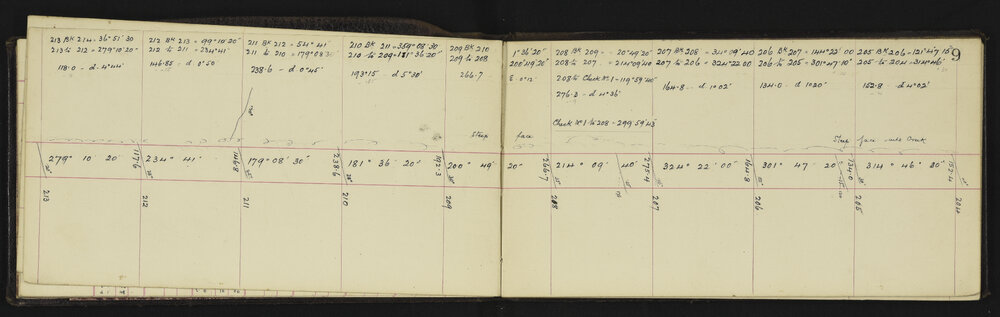 213 Bk 214 = 36° 51' 30
213 to 212 = 279° 10' 20"
118·0 — d. 4° 44'
212 Bk 213 = 99° 10' 20"
212 to 211 = 234° 41'
146·85 — d 0° 50'
211 Bk 212 = 54° 41'
211 to 210 = 179° 08' 30
238·6 — d 0° 45'
210 Bk 211 = 359° 08' 30
210 to 209 = 181° 36' 20"
193·15 — d 5° 30'
209 Bk 210
209 to 208
266·7
1° 36' 20"
200° 49' 20"
208 Bk 209 = 20° 49' 20
208 to 207 = 214° 09' 40
208 to Check No 1 — 119° 59' 40"
276·2 — d 4° 36'
Check No 1 to 208 — 299° 59' 43"
207 Bk 208 = 34° 09' 40
207 to 206 = 324° 22' 00
164·8 — d 1° 02'
206 Bk 207 = 144° 22' 00
206 to 205 = 301° 47' 10"
134·0 — d 10° 20'
205 Bk 206 — 121° 47' 10"
205 to 204 — 314° 46'
152·8 — d 4° 02'
9
Steep face
Steep face into Creek
279° 10' 20"
117·6
234° 41'
146·8
179° 08' 30"
238·6
181° 36' 20"
192·3
200° 49' 20"
266·7
214° 09' 40"
275·4
324° 22' 00"
164·8
301° 47' 20"
134·0
314° 46' 20"
152·4
213
212
211
210
209
208
207
206
205
204